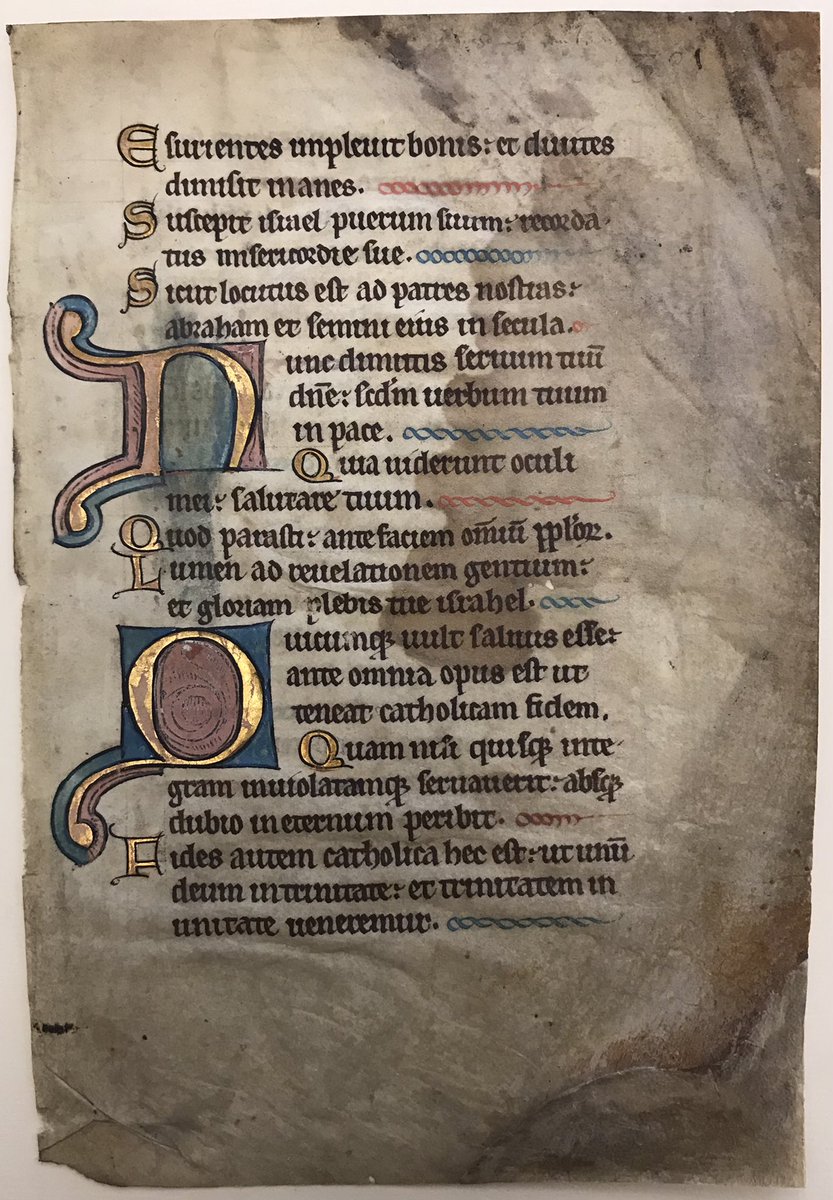 Esurientes impleuit bonis: et diuites
dimisit inanes.
Suscepit israel puerum suum: recorda
tus misericordie sue.
Sicut locutus est ad patres nostros:
abraham et semini eius in secula.
Nunc dimittis seruum tuū
dn̄e: scd̄m uerbum tuum
in pace.
Quia uiderunt oculi
mei: salutare tuum.
Quod parasti: ante faciem om̄iū pplōꝝ.
Lumen ad reuelationem gentium:
et gloriam plebis tue israhel.
Quicumqꝫ uult saluus esse:
ante omnia opus est ut
teneat catholicam fidem.
Quam nisi quisqꝫ inte
gram inuiolatamqꝫ seruauerit: absqꝫ
dubio in eternum peribit.
Fides autem catholica hec est: ut unū
deum in trinitate: et trinitatem in
unitate ueneremur.